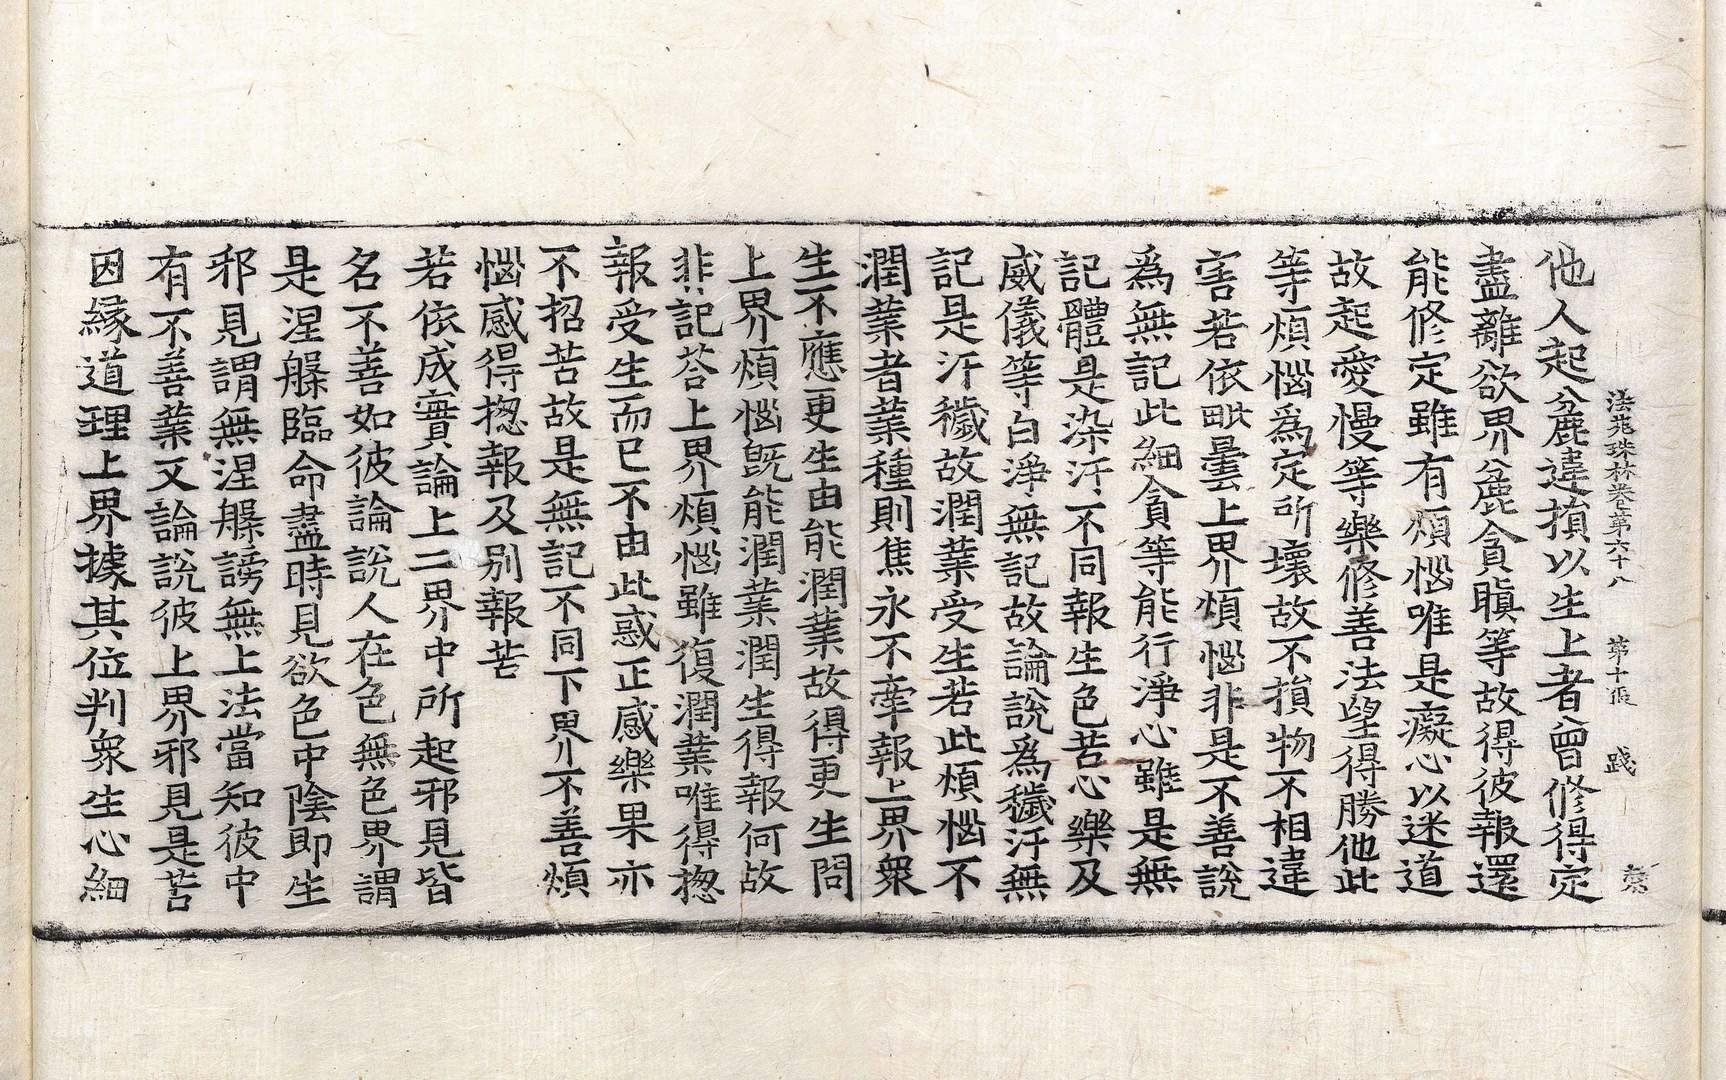 法苑珠林卷第六十八 第十張 踐
他人起麁違損以生上者曾修得定
盡離欲界麁貪瞋等故得彼報還
能修定雖有煩惱唯是癡心以迷道
故起愛慢等樂修善法望得勝他此
等煩惱為定所壞故不損物不相違
害若依毗曇上界煩惱非是不善說
為無記此細貪等能行淨心雖是無
記體是染汙不同報生色苦心樂及
威儀等白淨無記故論說為穢汙無
記是汙穢故潤業受生若此煩惱不
潤業者業種則焦永不牽報上界衆
生不應更生由能潤業故得更生問
上界煩惱旣能潤業潤生得報何故
非記荅上界煩惱雖復潤業唯得揔
報受生而已不由此惑正感樂果亦
不招苦故是無記不同下界不善煩
惱感得揔報及別報苦
若依成實論上二界中所起邪見皆
名不善如彼論說人在色無色界謂
是涅槃臨命盡時見欲色中陰即生
邪見謂無涅槃謗無上法當知彼中
有不善業又論說彼上界邪見是苦
因緣道理上界據其位判衆生心細